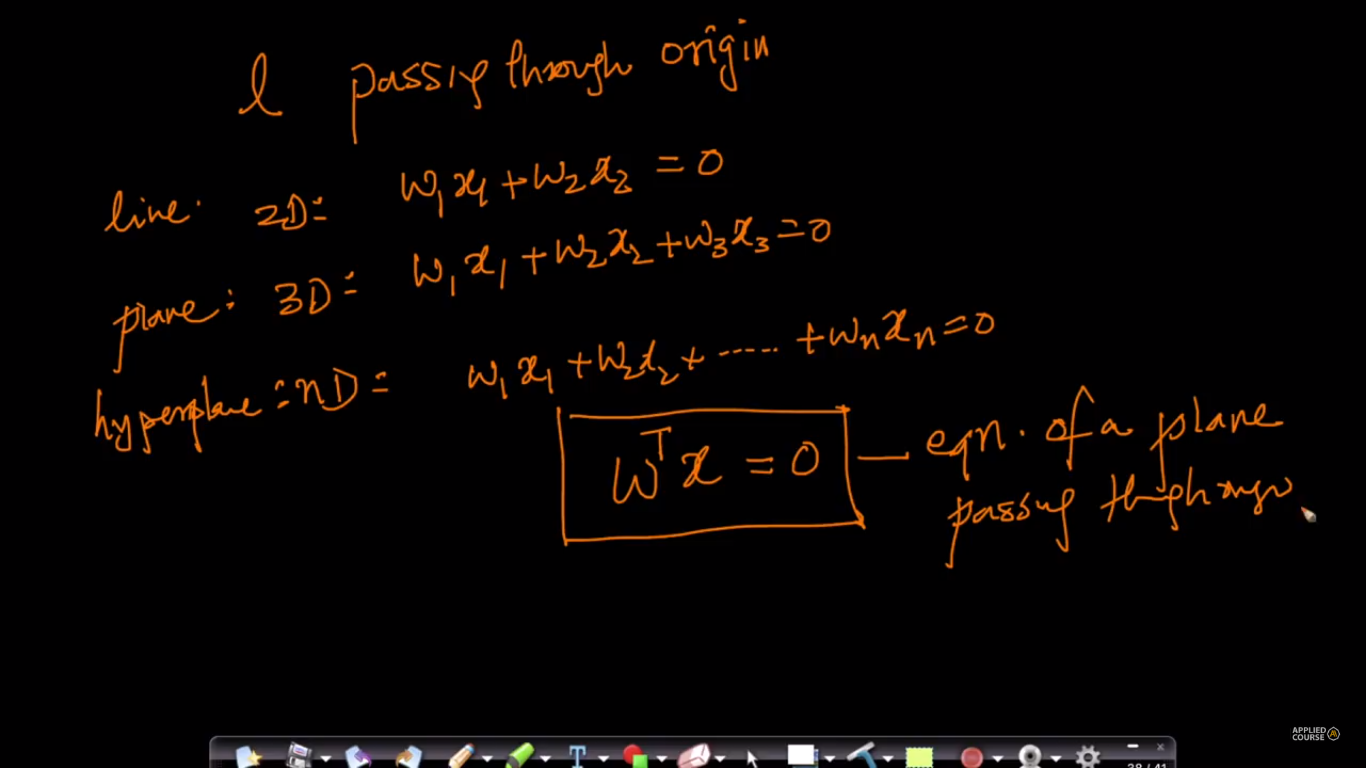 l passing through origin
line: 2D: w₁x₁ + w₂x₂ = 0
plane: 3D: w₁x₁ + w₂x₂ + w₃x₃ = 0
hyperplane: nD: w₁x₁ + w₂x₂ + ...... + wₙxₙ = 0
wᵀx = 0 — eqn. of a plane
passing through
APPLIED
COURSE